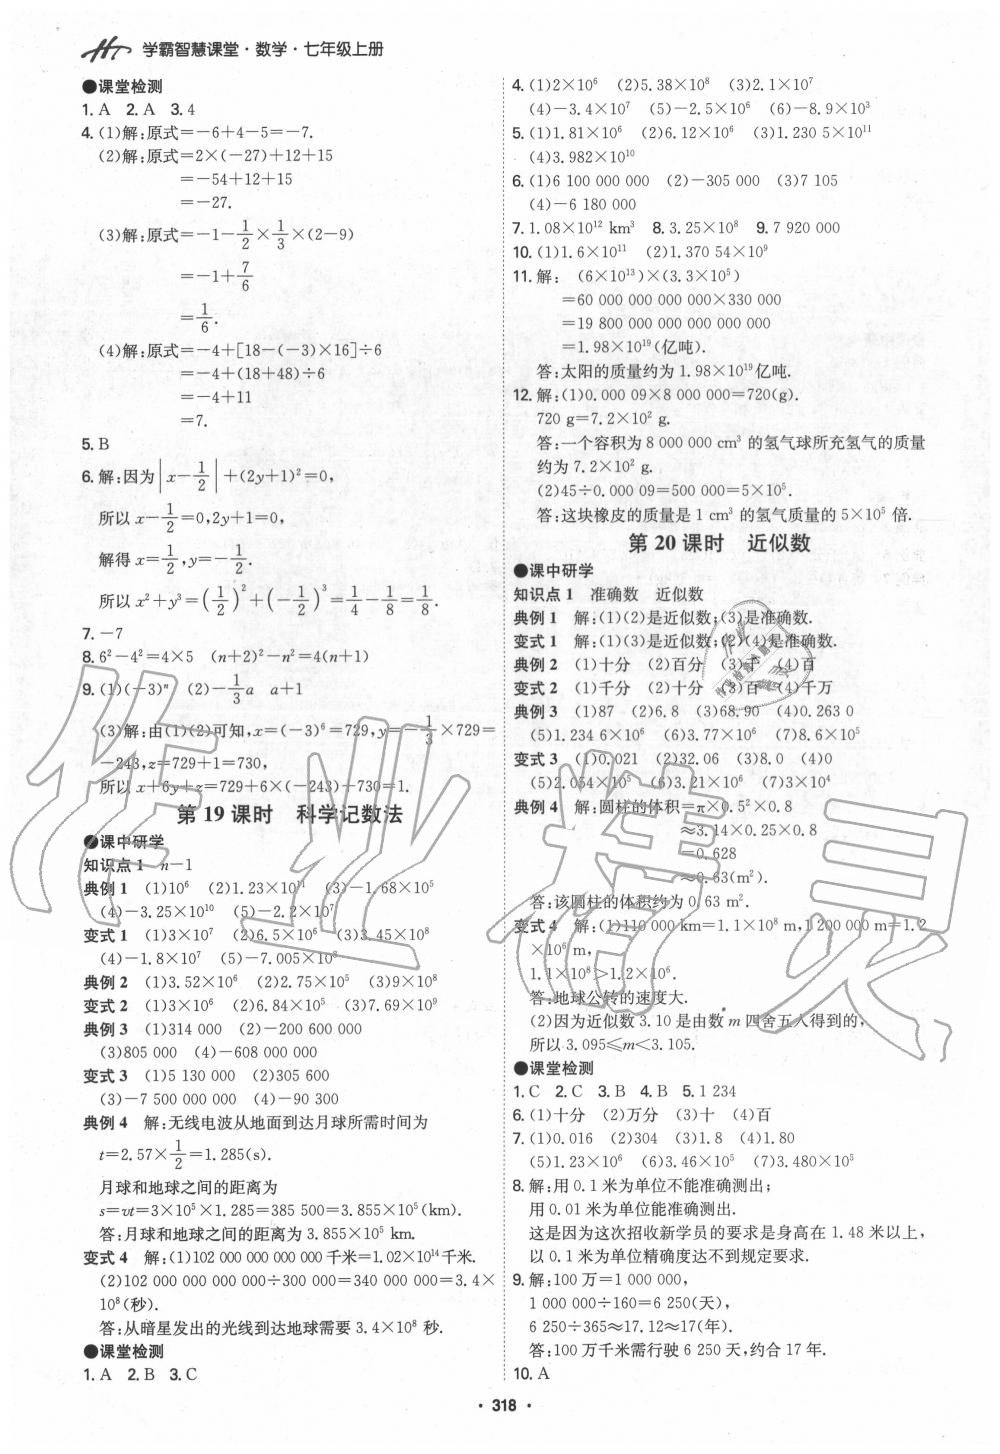 学霸智慧课堂·数学·七年级上册
●课堂检测
1. A  2. A  3. 4
4. (1)解:原式=-6+4-5=-7.
(2)解:原式=2×(-27)+12+15
=-54+12+15
=-27.
(3)解:原式=-1-1/2×1/3×(2-9)
=-1+7/6
=1/6.
(4)解:原式=-4+[18-(-3)×16]÷6
=-4+(18+48)÷6
=-4+11
=7.
5. B
6. 解:因为|x-1/2|+(2y+1)²=0,
所以 x-1/2=0,2y+1=0,
解得 x=1/2,y=-1/2.
所以 x²+y³=(1/2)²+(-1/2)³=1/4-1/8=1/8.
7. -7
8. 6²-4²=4×5  (n+2)²-n²=4(n+1)
9. (1)(-3)ⁿ  (2)-1/3a  a+1
(3)解:由(1)(2)可知,x=(-3)⁶=729,y=-1/3×729=
-243,z=729+1=730,
所以 x+6y+z=729+6×(-243)+730=1.
第 19 课时  科学记数法
●课中研学
知识点 1  n-1
典例 1  (1)10⁶  (2)1.23×10¹¹  (3)-1.68×10⁵
(4)-3.25×10¹⁰  (5)-2.2×10⁷
变式 1  (1)3×10⁷  (2)6.5×10⁶  (3)3.45×10⁸
(4)-1.8×10⁷  (5)-7.005×10⁸
典例 2  (1)3.52×10⁶  (2)2.75×10⁵  (3)9×10⁸
变式 2  (1)3×10⁶  (2)6.84×10⁵  (3)7.69×10⁹
典例 3  (1)314 000  (2)-200 600 000
(3)805 000  (4)-608 000
变式 3  (1)5 130 000  (2)305 600
(3)-7 500 000 000  (4)-90 300
典例 4  解:无线电波从地面到达月球所需时间为
t=2.57×1/2=1.285(s).
月球和地球之间的距离为
s=vt=3×10⁵×1.285=385 500=3.855×10⁵(km).
答:月球和地球之间的距离为 3.855×10⁵ km.
变式 4  解:(1)102 000 000 000 000千米=1.02×10¹⁴千米.
(2)102 000 000 000 000÷300 000=340 000 000=3.4×
10⁸(秒).
答:从暗星发出的光线到达地球需要 3.4×10⁸ 秒.
●课堂检测
1. A  2. B  3. C
4. (1)2×10⁶  (2)5.38×10⁸  (3)2.1×10⁷
(4)-3.4×10⁷  (5)-2.5×10⁶  (6)-8.9×10³
5. (1)1.81×10⁶  (2)6.12×10⁶  (3)1.230 5×10¹¹
(4)3.982×10¹⁰
6. (1)6 100 000 000  (2)-305 000  (3)7 105
(4)-6 180 000
7. 1.08×10¹² km³  8. 3.25×10⁸  9. 7 920 000
10. (1)1.6×10¹¹  (2)1.370 54×10⁹
11. 解: (6×10¹³)×(3.3×10⁵)
=60 000 000 000 000×330 000
=19 800 000 000 000 000 000
=1.98×10¹⁹(亿吨).
答:太阳的质量约为 1.98×10¹⁹亿吨.
12. 解:(1)0.000 09×8 000 000=720(g).
720 g=7.2×10² g.
答:一个容积为 8 000 000 cm³ 的氢气球所充氢气的质量
约为 7.2×10² g.
(2)45÷0.000 09=500 000=5×10⁵.
答:这块橡皮的质量是 1 cm³ 的氢气质量的 5×10⁵ 倍.
第 20 课时  近似数
●课中研学
知识点 1  准确数  近似数
典例 1  解:(1)(2)是近似数;(3)是准确数.
变式 1  解:(1)(3)是近似数;(2)(4)是准确数.
典例 2  (1)十分  (2)百分  (3)千  (4)百
变式 2  (1)千分  (2)十分  (3)百  (4)千万
典例 3  (1)87  (2)6.8  (3)68.90  (4)0.263 0
(5)1.234 6×10⁶  (6)3.77×10⁶  (7)8.6×10⁵
变式 3  (1)0.021  (2)32.06  (3)8.0  (4)0
(5)2.054×10⁵  (6)3.21×10⁶  (7)3×10⁴
典例 4  解:圆柱的体积=π×0.5²×0.8
≈3.14×0.25×0.8
=0.628
≈0.63(m²).
答:该圆柱的体积约为 0.63 m².
变式 4  解:(1)110 000 km=1.1×10⁸ m,1 200 000 m=1.2
×10⁶ m,
1.1×10⁸>1.2×10⁶.
答:地球公转的速度大.
(2)因为近似数 3.10 是由数 m 四舍五入得到的,
所以 3.095≤m<3.105.
●课堂检测
1. C  2. C  3. B  4. B  5. 1 234
6. (1)十分  (2)万分  (3)十  (4)百
7. (1)0.016  (2)304  (3)1.8  (4)1.80
(5)1.23×10⁶  (6)3.46×10⁵  (7)3.480×10⁵
8. 解:用 0.1 米为单位不能准确测出;
用 0.01 米为单位能准确测出.
这是因为这次招收新学员的要求是身高在 1.48 米以上,
以 0.1 米为单位精确度达不到规定要求.
9. 解:100 万=1 000 000,
1 000 000÷160=6 250(天),
6 250÷365≈17.12≈17(年).
答:100 万千米需行驶 6 250 天,约合 17 年.
10. A
· 318 ·
作业精灵